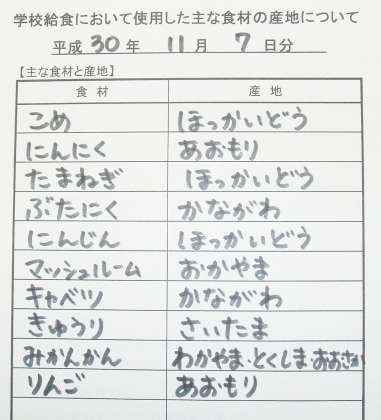 学校給食において使用した主な食材の産地について
平成 30 年 11 月 7 日分
【主な食材と産地】
食 材 産 地
こめ ほっかいどう
にんにく あおもり
たまねぎ ほっかいどう
ぶたにく かながわ
にんじん ほっかいどう
マッシュルーム おかやま
キャベツ かながわ
きゅうり さいたま
みかんかん わかやま・とくしま・おおさか
りんご あおもり